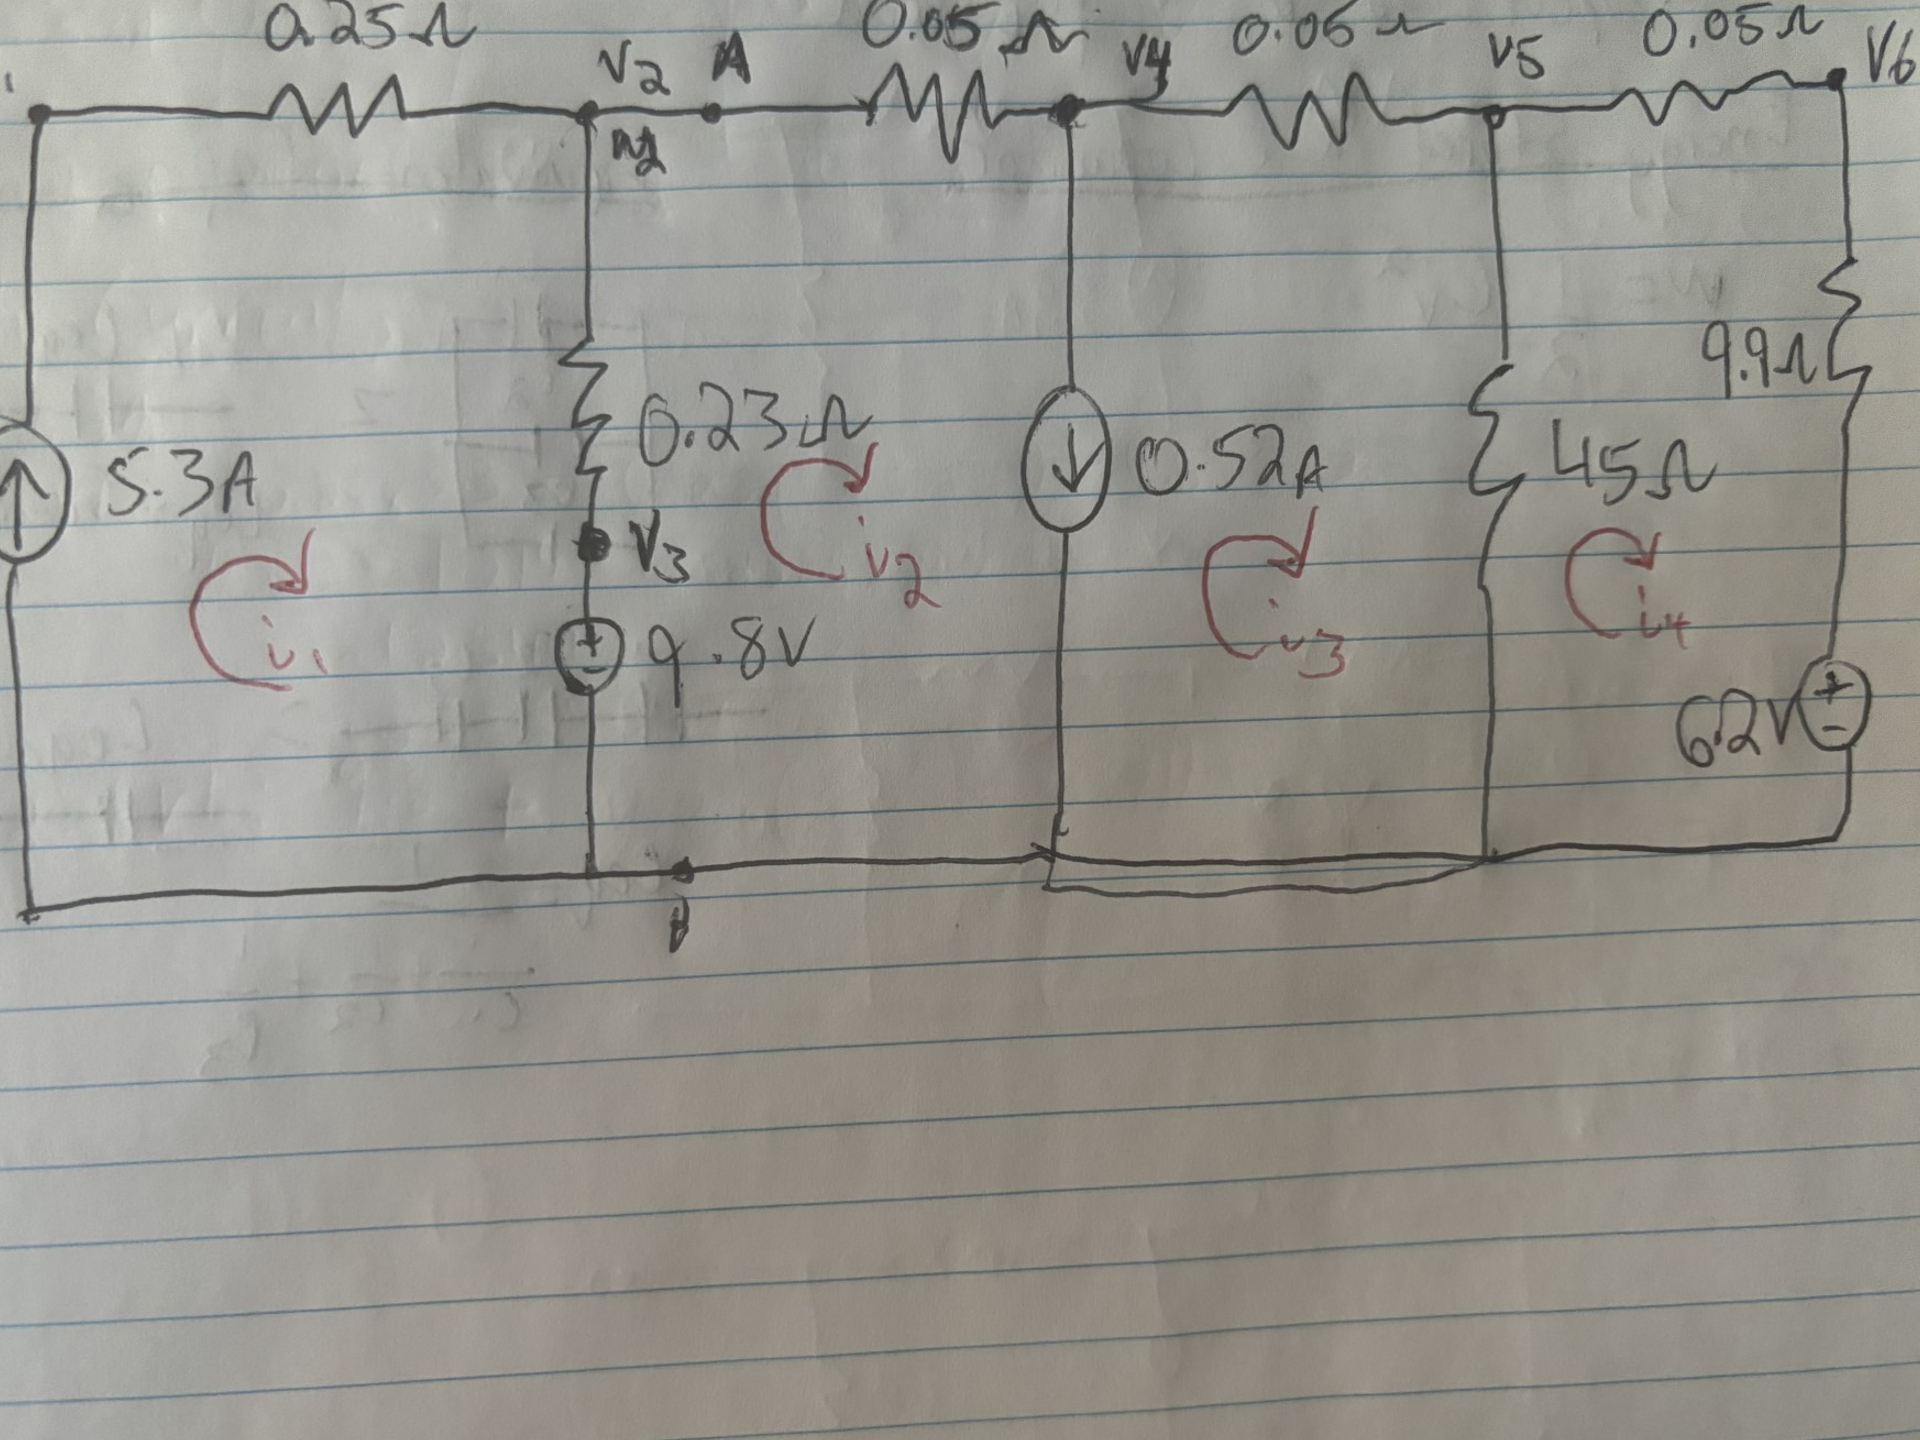 0.25Ω
V2
A
0.05Ω
V4
0.05Ω
V5
0.05Ω
V6
5.3A
0.23Ω
V3
9.8V
0.52A
45Ω
9.9Ω
6.2V
i1
i2
i3
i4